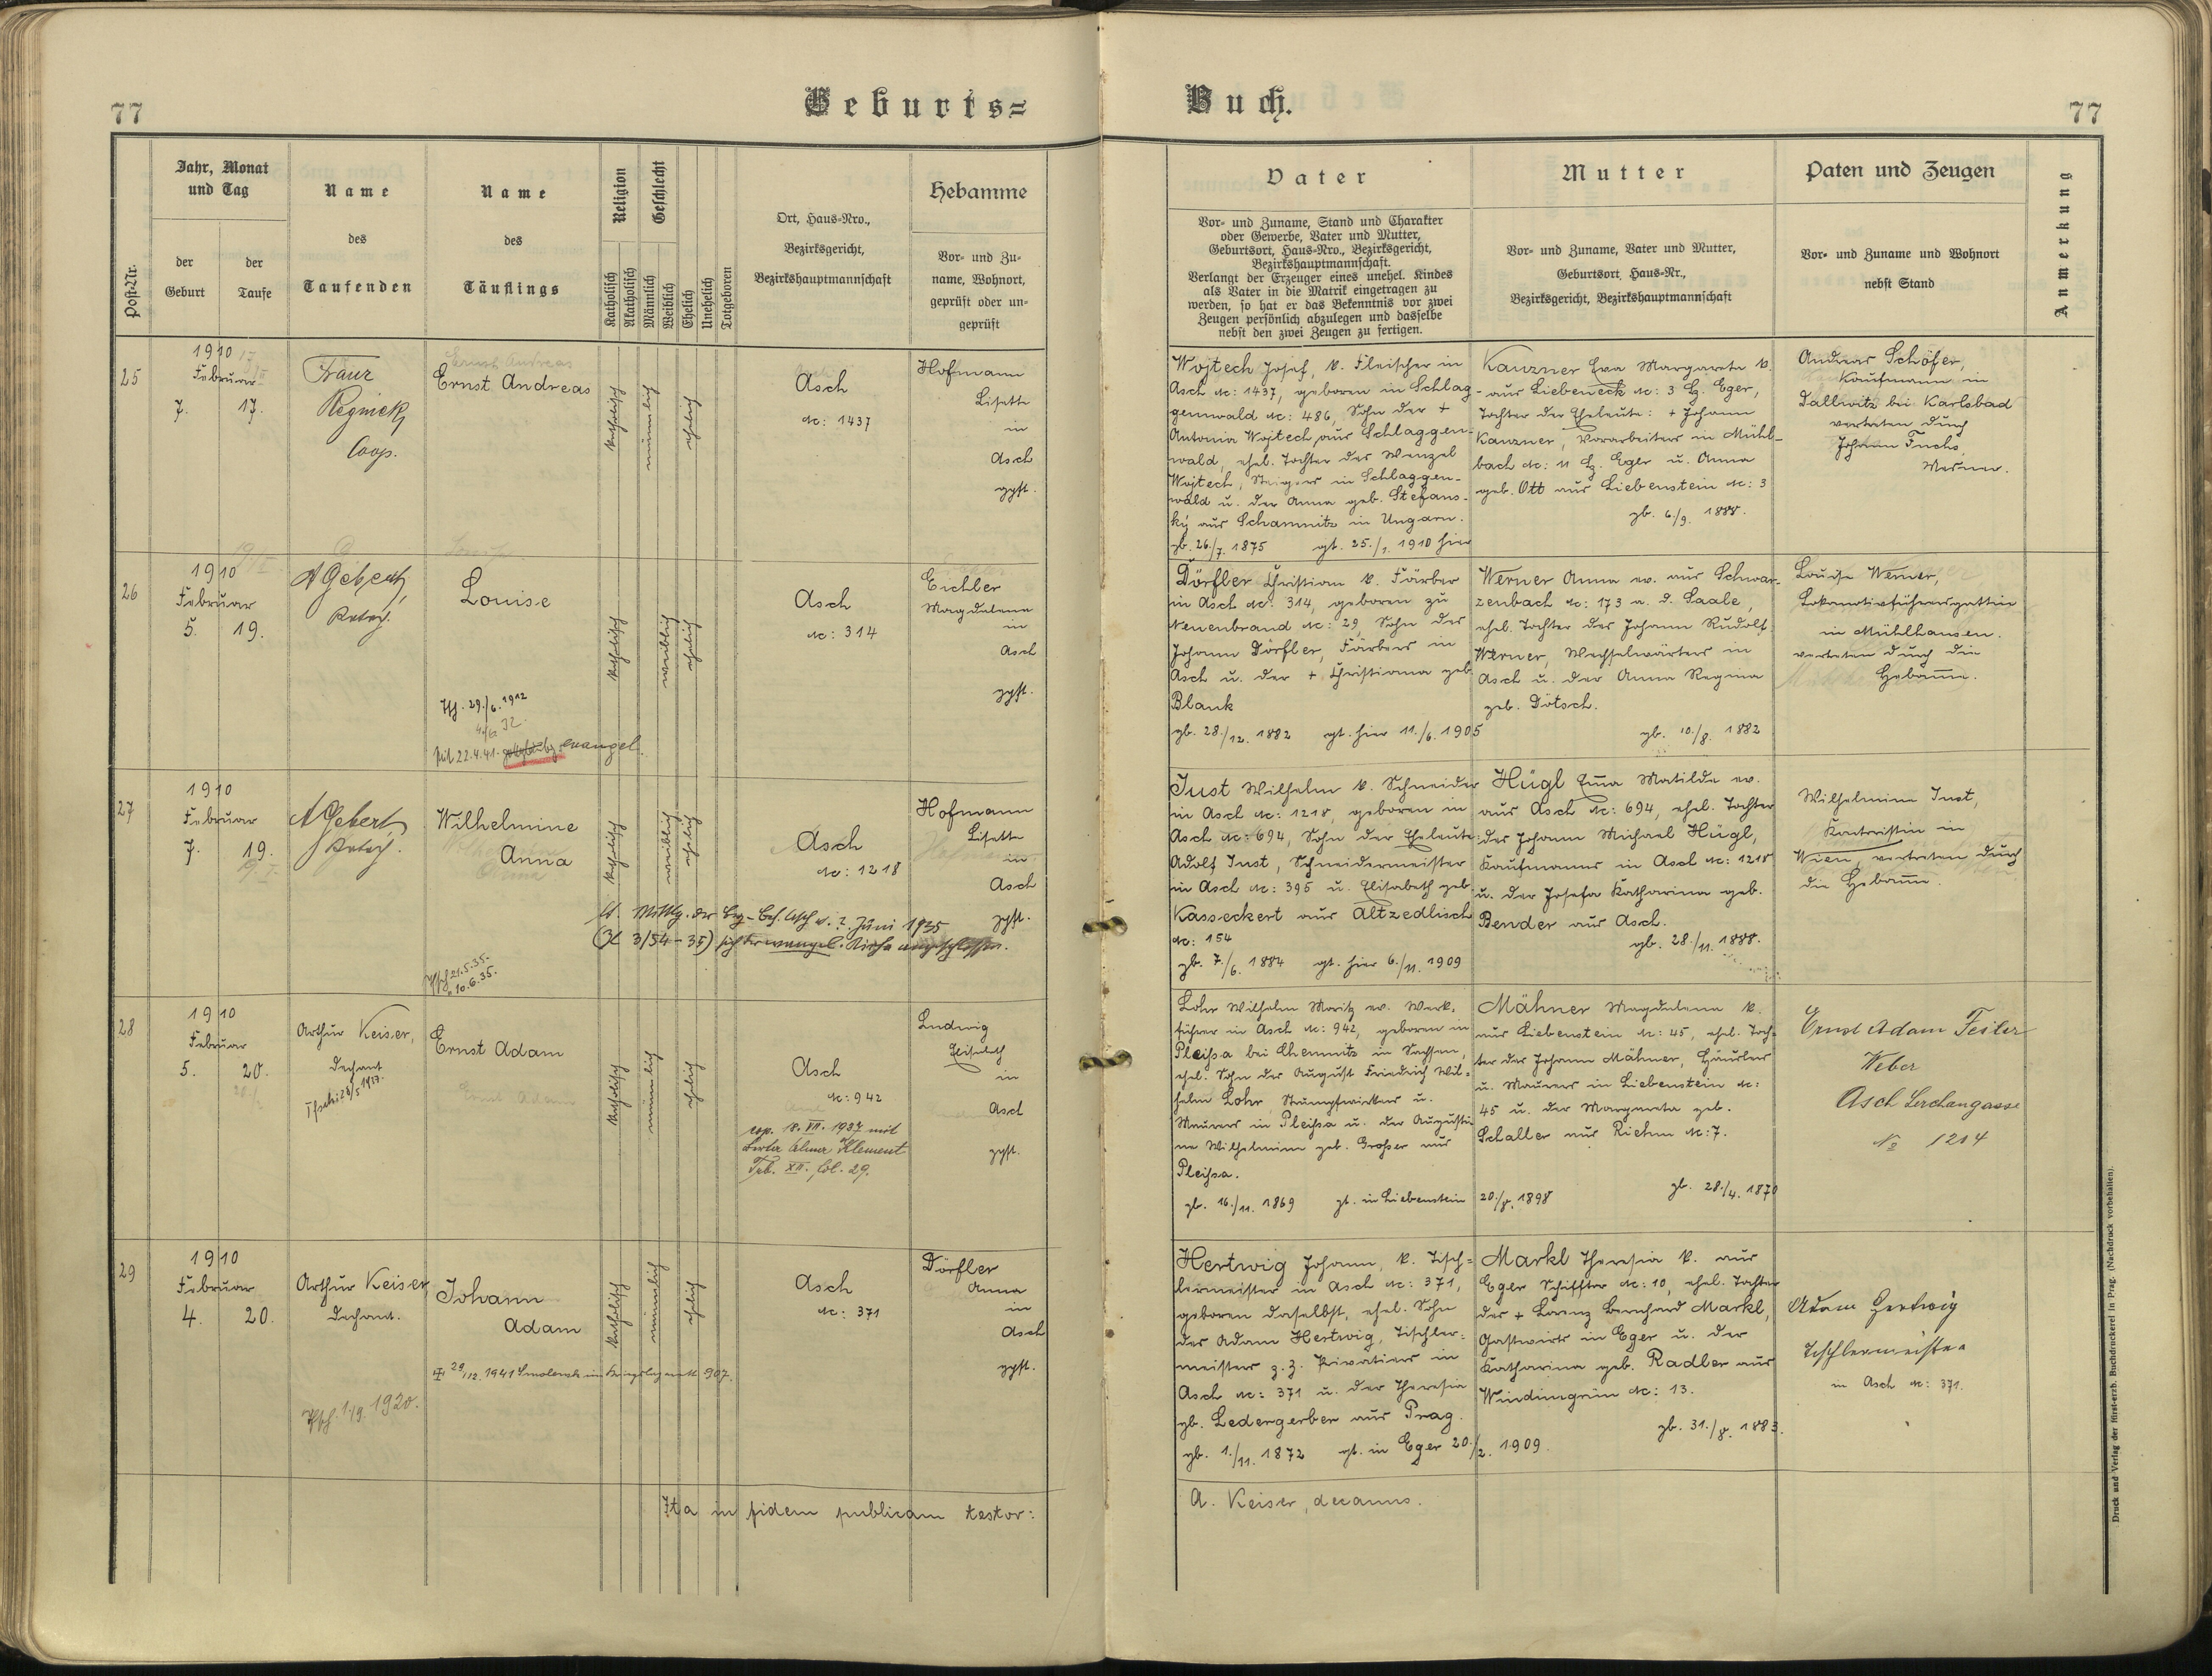 77
Geburts=
Buch.
77
Post-Nr.
Jahr, Monat
und Tag
der
Geburt
der
Taufe
Name
des
Taufenden
Name
des
Täuflings
Religion
Katholisch
Akatholisch
Geschlecht
Männlich
Weiblich
Ehelich
Unehelich
Totgeboren
Ort, Haus-Nro.,
Bezirksgericht,
Bezirkshauptmannschaft
Hebamme
Vor- und Zu-
name, Wohnort,
geprüft oder un-
geprüft
Vater
Vor- und Zuname, Stand und Charakter
oder Gewerbe, Vater und Mutter,
Geburtsort, Haus-Nro., Bezirksgericht,
Bezirkshauptmannschaft.
Verlangt der Erzeuger eines unehel. Kindes
als Vater in die Matrik eingetragen zu
werden, so hat er das Bekenntnis vor zwei
Zeugen persönlich abzulegen und dasselbe
nebst den zwei Zeugen zu fertigen.
Mutter
Vor- und Zuname, Vater und Mutter,
Geburtsort, Haus-Nr.,
Bezirksgericht, Bezirkshauptmannschaft
Paten und Zeugen
Vor- und Zuname und Wohnort
nebst Stand
Anmerkung
25
1910
Februar
7. 17.
Franz
Regniek
Coop.
Ernst Andreas
katholisch
männlich
ehelich
Asch
Nc: 1437
Hofmann
Lisette
in
Asch
gpft.
Wojtech Josef, k. Fleischer in
Asch Nc: 1437, geboren in Schlag-
genwald Nc: 486, Sohn der +
Antonia Wojtech aus Schlaggen-
wald, ehel. Tochter des Wenzel
Wojtech, Steigers in Schlaggen-
wald u. der Anna geb. Stefans-
ký aus Schamnitz in Ungarn.
gb. 26./7. 1875 gt. 25./1. 1910 hier
Kanzner Eva Margareta k.
aus Liebeneck Nc: 3 Bz. Eger,
Tochter der Eheleute: + Johann
Kanzner, Vorarbeiters in Mühl-
bach Nc: 11 Bz. Eger u. Anna
geb. Ott aus Liebenstein Nc: 3
gb. 6./9. 1888.
Andreas Schöfer,
Kaufmann in
Dallwitz bei Karlsbad
vertreten durch
Johann Fuchs,
Mesner.
26
1910
Februar
5. 19.
A Gebert,
Katech.
Louise
29./6. 1912
22.4.41. evangel.
katholisch
weiblich
ehelich
Asch
Nc: 314
Eichler
Magdalena
in
Asch
gpft.
Dörfler Christian k. Färber
in Asch Nc: 314, geboren zu
Neuenbrand Nc: 29, Sohn des
Johann Dörfler, Färbers in
Asch u. der + Christiana geb.
Blank
gb. 28./12. 1882 gt. hier 11./6. 1905
Werner Anna ev. aus Schwar-
zenbach Nc: 173 a. d. Saale,
ehel. Tochter des Johann Rudolf
Werner, Wechselwärters in
Asch u. der Anna Regina
geb. Dötsch.
gb. 10./8. 1882
Louise Werner,
Lokomotivführersgattin
in Mühlhausen.
vertreten durch die
Hebamme.
27
1910
Februar
7. 19.
A Gebert,
Katech.
Wilhelmine
Anna
21.5.35.
10.6.35.
katholisch
weiblich
ehelich
Asch
Nc: 1218
lt. Mittlg. der Bez-Beh. Asch v. 7. Juni 1935
(Zl 3/54-35) sich der evangel. Kirche angeschlossen.
Hofmann
Lisette
in
Asch
gpft.
Just Wilhelm k. Schneider
in Asch Nc: 1218, geboren in
Asch Nc: 694, Sohn der Eheleute:
Adolf Just, Schneidermeister
in Asch Nc: 395 u. Elisabeth geb.
Kasseckert aus Altzedlisch
Nc: 154
gb. 7./6. 1884 gt. hier 6./11. 1909
Hügl Emma Matilde ev.
aus Asch Nc: 694, ehel. Tochter
des Johann Michael Hügl,
Kaufmanns in Asch Nc: 1218
u. der Josefa Katharina geb.
Bender aus Asch.
gb. 28./11. 1888.
Wilhelmine Just,
Kontoristin in
Wien, vertreten durch
die Hebamme.
28
1910
Februar
5. 20.
Arthur Keiser,
Dechant
28/5 1917.
Ernst Adam
katholisch
männlich
ehelich
Asch
Nc: 942
cop. 18. VII. 1937 mit
Berta Klement
Trb. XII. fol. 29.
Ludwig
Elisabeth
in
Asch
gpft.
Lohr Wilhelm Moritz ev. Werk-
führer in Asch Nc: 942, geboren in
Pleißa bei Chemnitz in Sachsen,
ehel. Sohn des August Friedrich Wil-
helm Lohr, Strumpfwirkers u.
Maurers in Pleißa u. der Augusti-
ne Wilhelmine geb. Großer aus
Pleißa.
gb. 16./11. 1869 gt. in Liebenstein 20./8. 1898
Mähner Magdalena k.
aus Liebenstein Nc: 45, ehel. Toch-
ter des Johann Mähner, Häuslers
u. Maurers in Liebenstein Nc:
45 u. der Margareta geb.
Schaller aus Riehm Nc: 7.
gb. 28./4. 1870
Ernst Adam Feiler
Weber
Asch Lerchengasse
No 1214
29
1910
Februar
4. 20.
Arthur Keiser,
Dechant.
1./9. 1920.
Johann
Adam
29/12. 1941 Smolensk 907.
katholisch
männlich
ehelich
Asch
Nc: 371
Dörfler
Anna
in
Asch
gpft.
Hertwig Johann, k. Tisch-
lermeister in Asch Nc: 371,
geboren daselbst, ehel. Sohn
des Adam Hertwig, Tischler-
meisters z. Z. Privatiers in
Asch Nc: 371 u. der Theresia
gb. Ledergerber aus Prag.
gb. 1./11. 1872 gt. in Eger 20./2. 1909.
Markl Theresia k. aus
Eger Schifftor Nc: 10, ehel. Tochter
des + Lorenz Bernhard Markl,
Gastwirts in Eger u. der
Katharina geb. Radler aus
Windimgrün Nc: 13.
gb. 31./8. 1883.
Adam Hertwig
Tischlermeister
in Asch Nc: 371.
Ita in fidem publicam testor:
A. Keiser, decanus.
Druck und Verlag der fürst-erzb. Buchdruckerei in Prag. (Nachdruck vorbehalten).